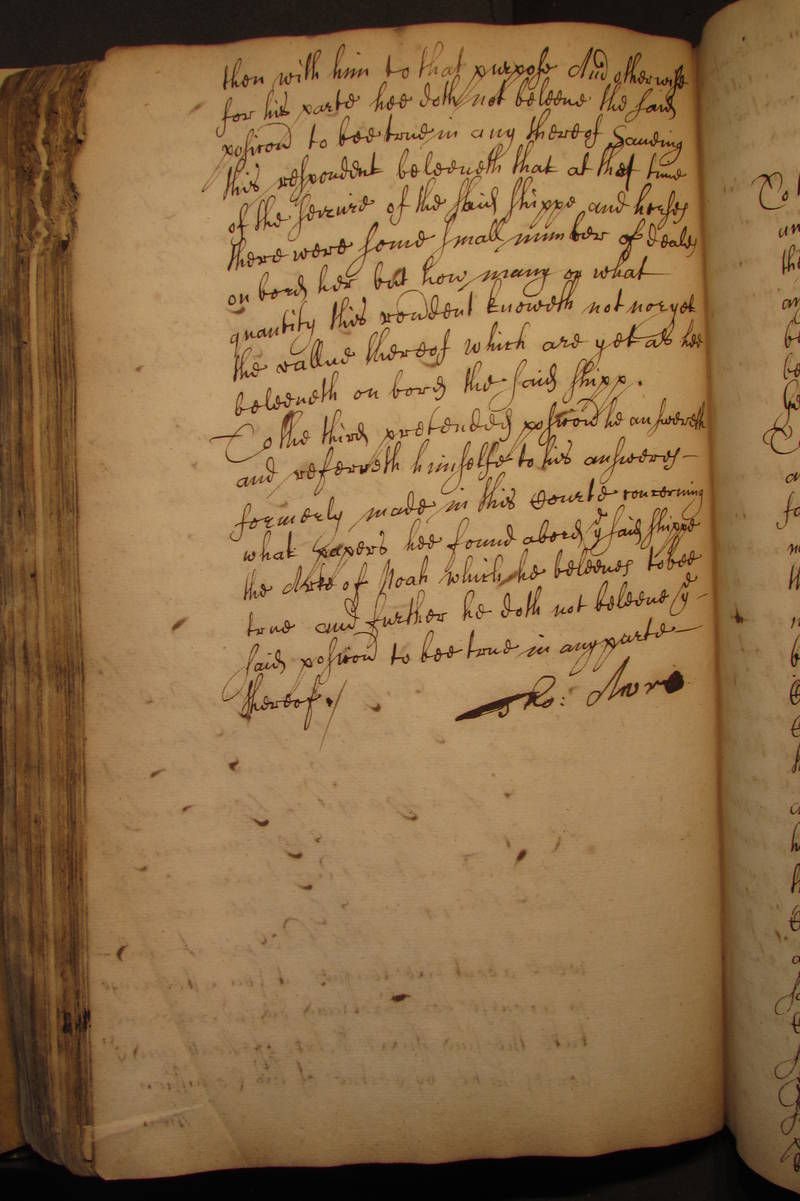 then with him to that purpose And otherwise
for his parte hee doth not beleeve the said
posicon to bee true in any thereof Saveing
this respondent beleeveth that at that time
of the seizure of the said shippe and horses
there were some small number of deales
on bord her but how many or what
quantity this rondent knoweth not nor yet
the vallue thereof which are yet as hee
beleeveth on bord the said shipp.
To the third pretended posicon he answereth
and referreth himselfe to his answeres
formerly made in this Courte concerning
what papers hee found abord ye said shippe
the Arke of Noah which he beleeves to bee
true and further he doth not beleeve ye
said posicon to bee true in any parte
thereof./